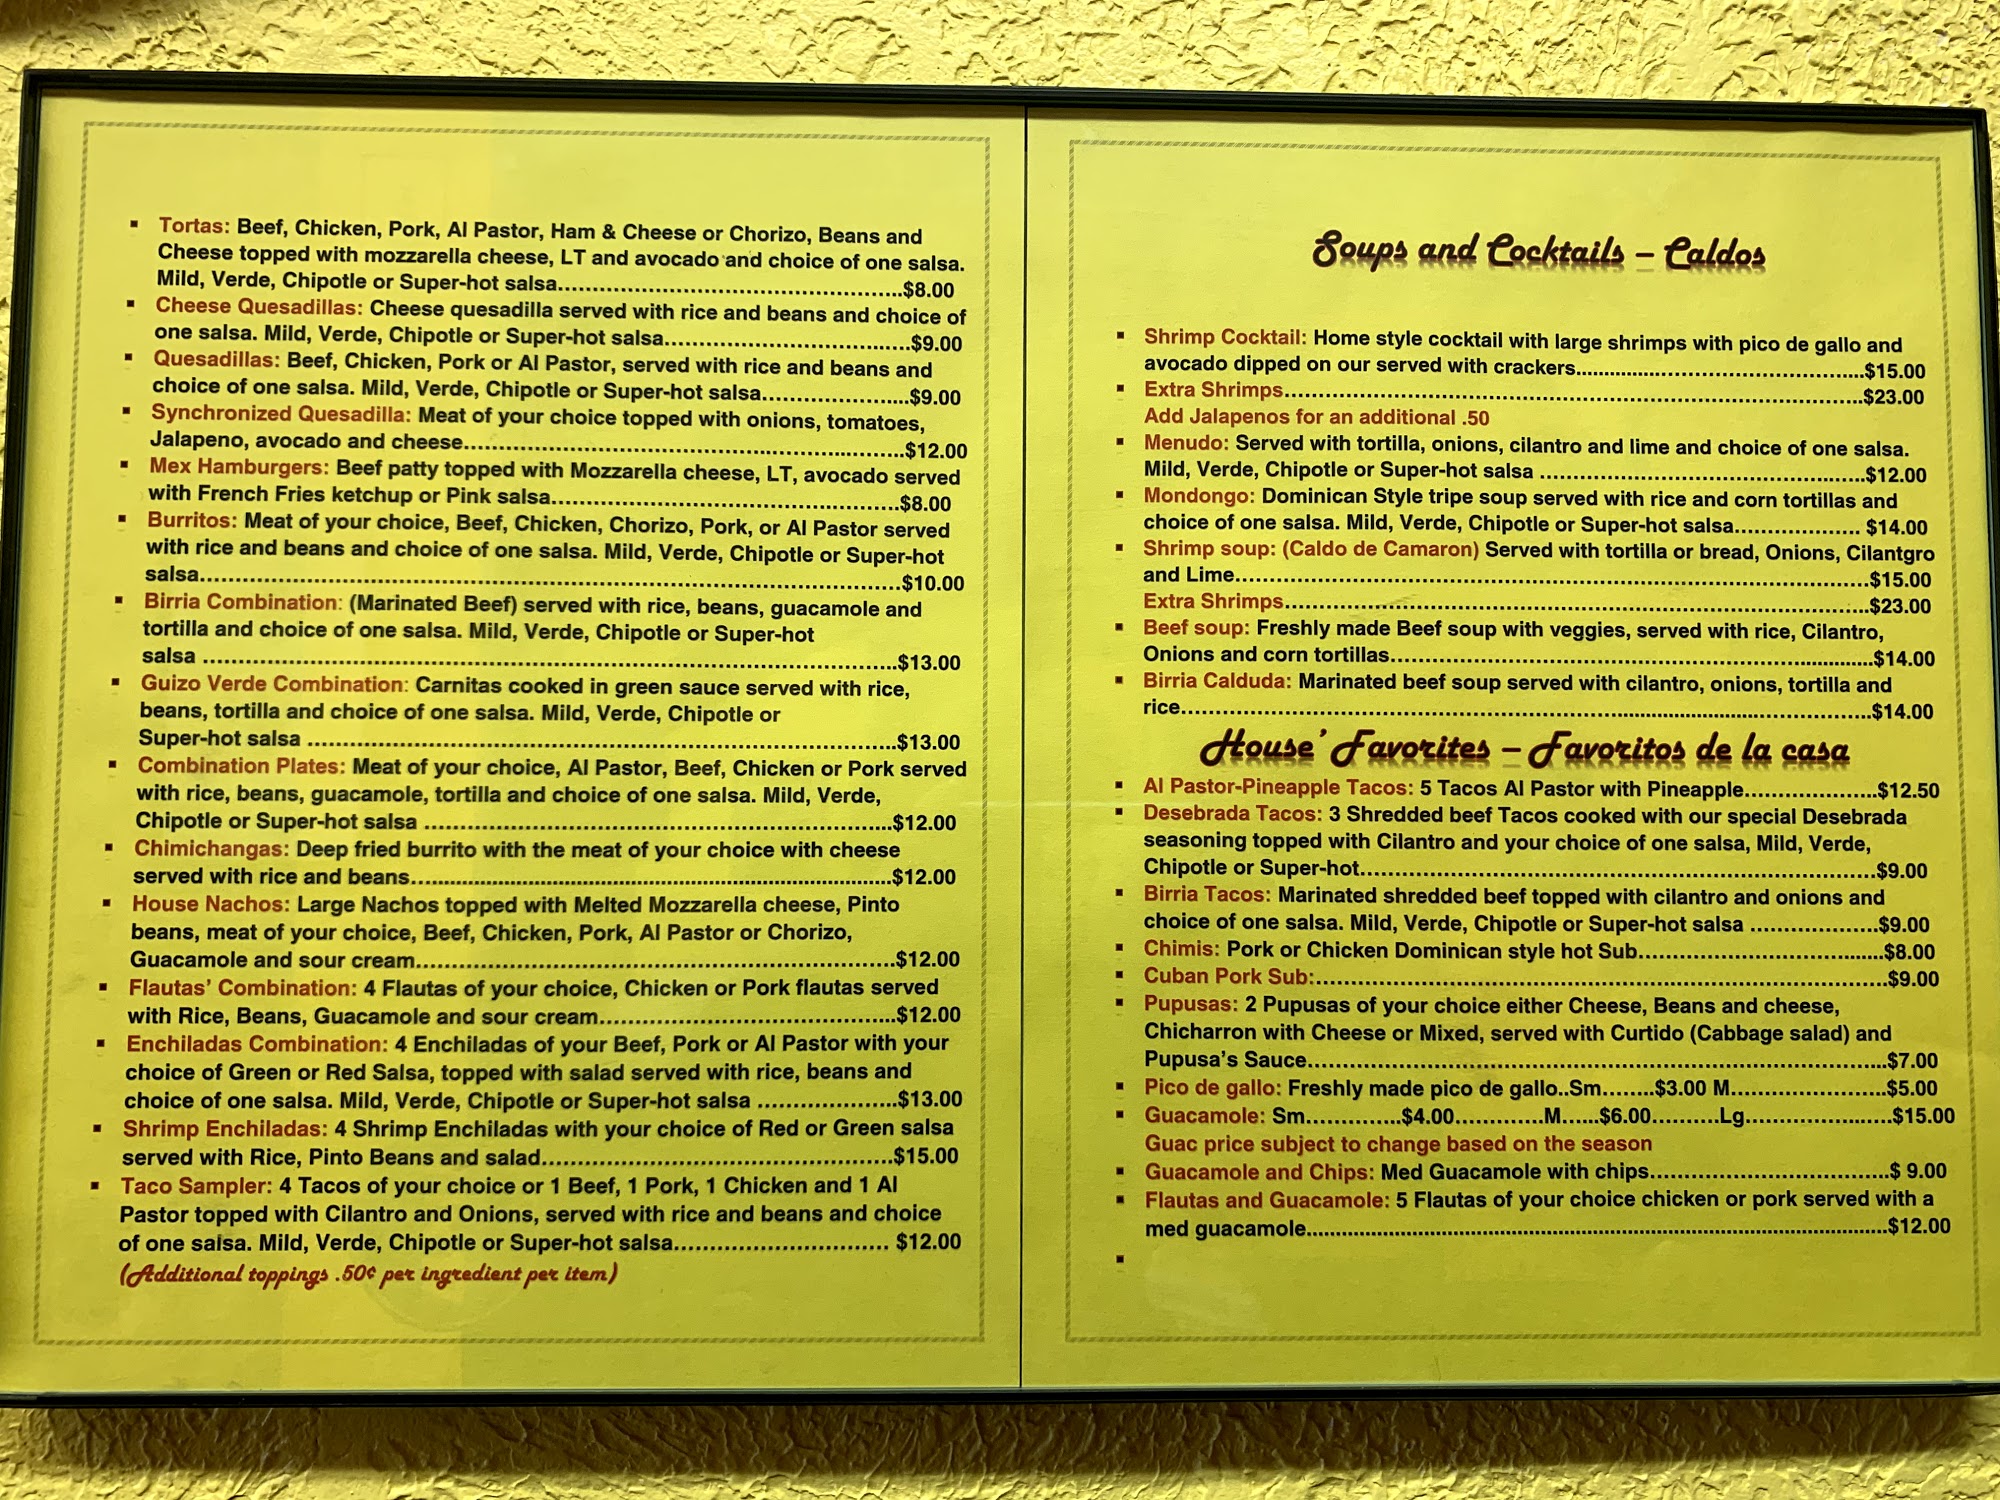 Tortas: Beef, Chicken, Pork, Al Pastor, Ham & Cheese or Chorizo, Beans and
Cheese topped with mozzarella cheese, LT and avocado and choice of one salsa.
Mild, Verde, Chipotle or Super-hot salsa..........$8.00
Cheese Quesadillas: Cheese quesadilla served with rice and beans and choice of
one salsa. Mild, Verde, Chipotle or Super-hot salsa..........$9.00
Quesadillas: Beef, Chicken, Pork or Al Pastor, served with rice and beans and
choice of one salsa. Mild, Verde, Chipotle or Super-hot salsa..........$9.00
Synchronized Quesadilla: Meat of your choice topped with onions, tomatoes,
Jalapeno, avocado and cheese..........$12.00
Mex Hamburgers: Beef patty topped with Mozzarella cheese, LT, avocado served
with French Fries ketchup or Pink salsa..........$8.00
Burritos: Meat of your choice, Beef, Chicken, Chorizo, Pork, or Al Pastor served
with rice and beans and choice of one salsa. Mild, Verde, Chipotle or Super-hot
salsa..........$10.00
Birria Combination: (Marinated Beef) served with rice, beans, guacamole and
tortilla and choice of one salsa. Mild, Verde, Chipotle or Super-hot
salsa ..........$13.00
Guizo Verde Combination: Carnitas cooked in green sauce served with rice,
beans, tortilla and choice of one salsa. Mild, Verde, Chipotle or
Super-hot salsa ..........$13.00
Combination Plates: Meat of your choice, Al Pastor, Beef, Chicken or Pork served
with rice, beans, guacamole, tortilla and choice of one salsa. Mild, Verde,
Chipotle or Super-hot salsa ..........$12.00
Chimichangas: Deep fried burrito with the meat of your choice with cheese
served with rice and beans..........$12.00
House Nachos: Large Nachos topped with Melted Mozzarella cheese, Pinto
beans, meat of your choice, Beef, Chicken, Pork, Al Pastor or Chorizo,
Guacamole and sour cream..........$12.00
Flautas' Combination: 4 Flautas of your choice, Chicken or Pork flautas served
with Rice, Beans, Guacamole and sour cream..........$12.00
Enchiladas Combination: 4 Enchiladas of your Beef, Pork or Al Pastor with your
choice of Green or Red Salsa, topped with salad served with rice, beans and
choice of one salsa. Mild, Verde, Chipotle or Super-hot salsa ..........$13.00
Shrimp Enchiladas: 4 Shrimp Enchiladas with your choice of Red or Green salsa
served with Rice, Pinto Beans and salad..........$15.00
Taco Sampler: 4 Tacos of your choice or 1 Beef, 1 Pork, 1 Chicken and 1 Al
Pastor topped with Cilantro and Onions, served with rice and beans and choice
of one salsa. Mild, Verde, Chipotle or Super-hot salsa.......... $12.00
(Additional toppings .50¢ per ingredient per item)
Soups and Cocktails – Caldos
Shrimp Cocktail: Home style cocktail with large shrimps with pico de gallo and
avocado dipped on our served with crackers..........$15.00
Extra Shrimps..........$23.00
Add Jalapenos for an additional .50
Menudo: Served with tortilla, onions, cilantro and lime and choice of one salsa.
Mild, Verde, Chipotle or Super-hot salsa ..........$12.00
Mondongo: Dominican Style tripe soup served with rice and corn tortillas and
choice of one salsa. Mild, Verde, Chipotle or Super-hot salsa.......... $14.00
Shrimp soup: (Caldo de Camaron) Served with tortilla or bread, Onions, Cilantgro
and Lime..........$15.00
Extra Shrimps..........$23.00
Beef soup: Freshly made Beef soup with veggies, served with rice, Cilantro,
Onions and corn tortillas..........$14.00
Birria Calduda: Marinated beef soup served with cilantro, onions, tortilla and
rice..........$14.00
House' Favorites – Favoritos de la casa
Al Pastor-Pineapple Tacos: 5 Tacos Al Pastor with Pineapple..........$12.50
Desebrada Tacos: 3 Shredded beef Tacos cooked with our special Desebrada
seasoning topped with Cilantro and your choice of one salsa, Mild, Verde,
Chipotle or Super-hot..........$9.00
Birria Tacos: Marinated shredded beef topped with cilantro and onions and
choice of one salsa. Mild, Verde, Chipotle or Super-hot salsa ..........$9.00
Chimis: Pork or Chicken Dominican style hot Sub..........$8.00
Cuban Pork Sub:..........$9.00
Pupusas: 2 Pupusas of your choice either Cheese, Beans and cheese,
Chicharron with Cheese or Mixed, served with Curtido (Cabbage salad) and
Pupusa's Sauce..........$7.00
Pico de gallo: Freshly made pico de gallo..Sm........$3.00 M..........$5.00
Guacamole: Sm..........$4.00..........M......$6.00..........Lg..........$15.00
Guac price subject to change based on the season
Guacamole and Chips: Med Guacamole with chips..........$ 9.00
Flautas and Guacamole: 5 Flautas of your choice chicken or pork served with a
med guacamole..........$12.00